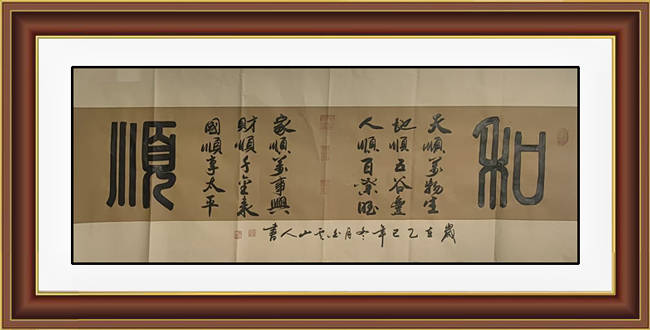 和
天順萬物生
地順五谷豐
人順百業旺
家順萬事興
財順千金來
國順享太平
順
歲在乙巳年冬月云山人書